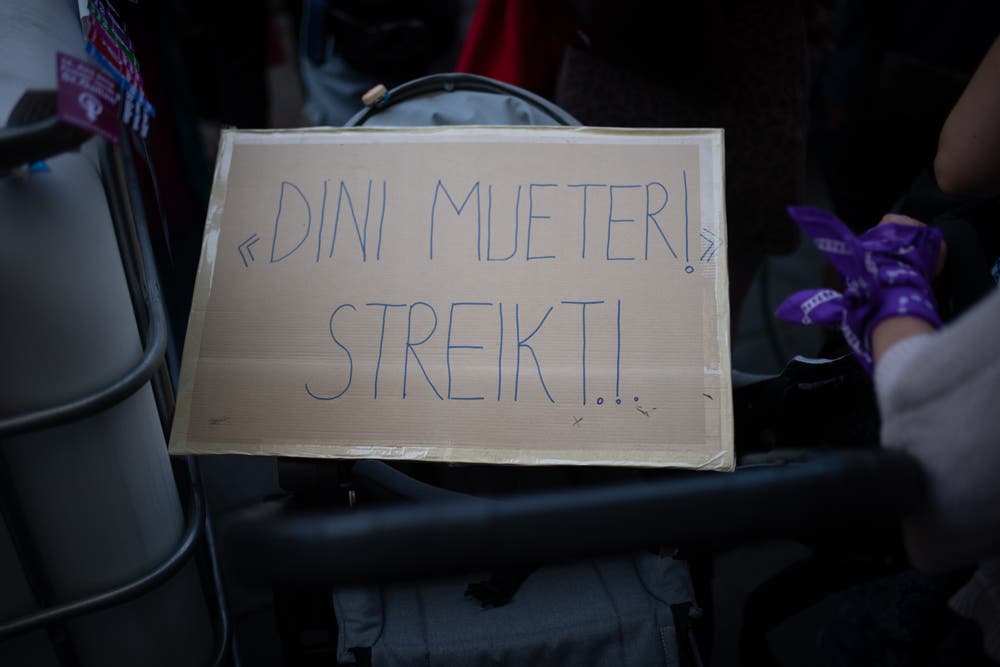 «DINI MUETER!»
STREIKT.!.